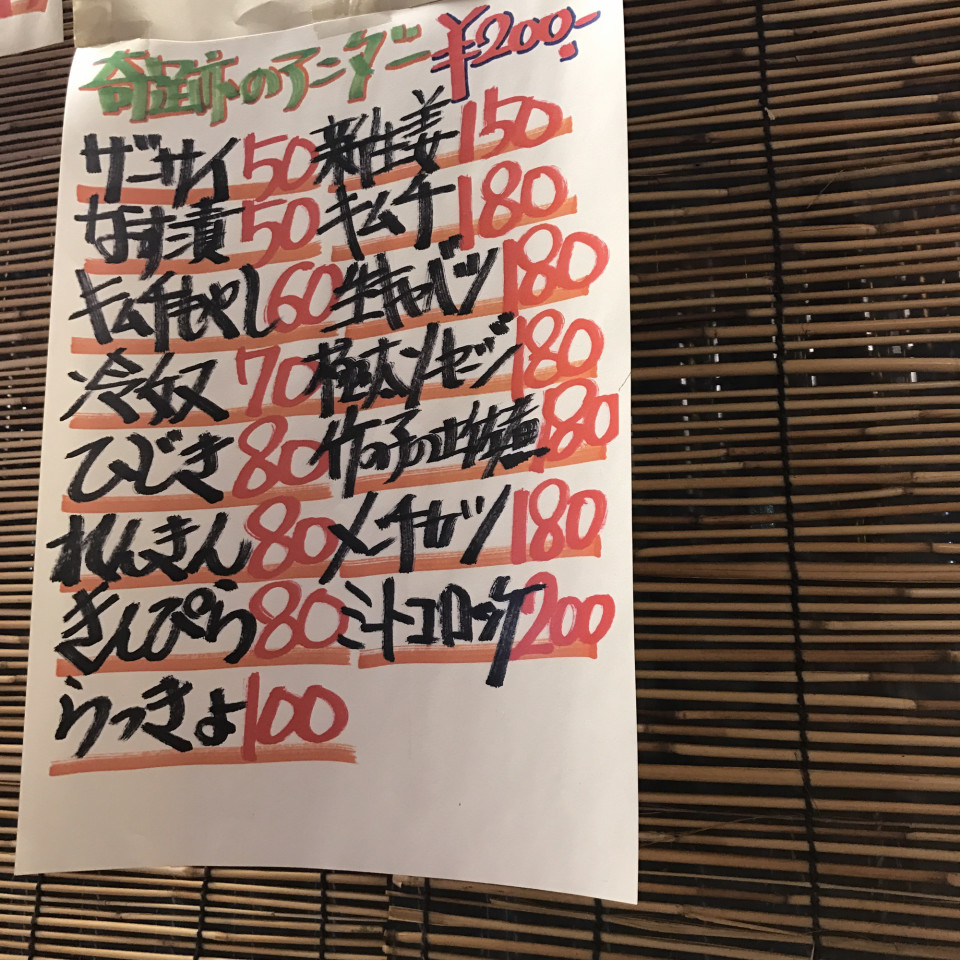 奇跡のアンダー ¥200-
ザーサイ 50 新生姜 150
なす漬 50 キムチ 180
キムチもやし 60 生キャベツ 180
冷奴 70 極太ソーセージ 180
ひじき 80 竹の子の土佐煮 180
れんきん 80 メンチカツ 180
きんぴら 80 ミートコロッケ 200
らっきょ 100